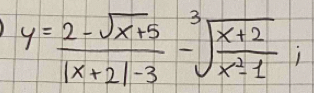 ) y = \frac{2 - \sqrt{x+5}}{|x+2| - 3} - \sqrt[3]{\frac{x+2}{x^2-1}} ;